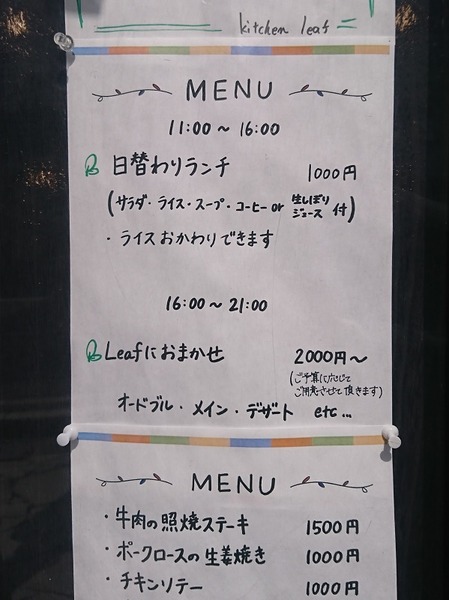 kitchen leaf
MENU
11:00～16:00
日替わりランチ 1000円
(サラダ・ライス・スープ・コーヒー or 生しぼりジュース 付)
・ライスおかわりできます
16:00～21:00
Leafにおまかせ 2000円～
(ご予算に応じて
ご用意させて頂きます)
オードブル・メイン・デザート etc...
MENU
・牛肉の照焼ステーキ 1500円
・ポークロースの生姜焼き 1000円
・チキンソテー 1000円